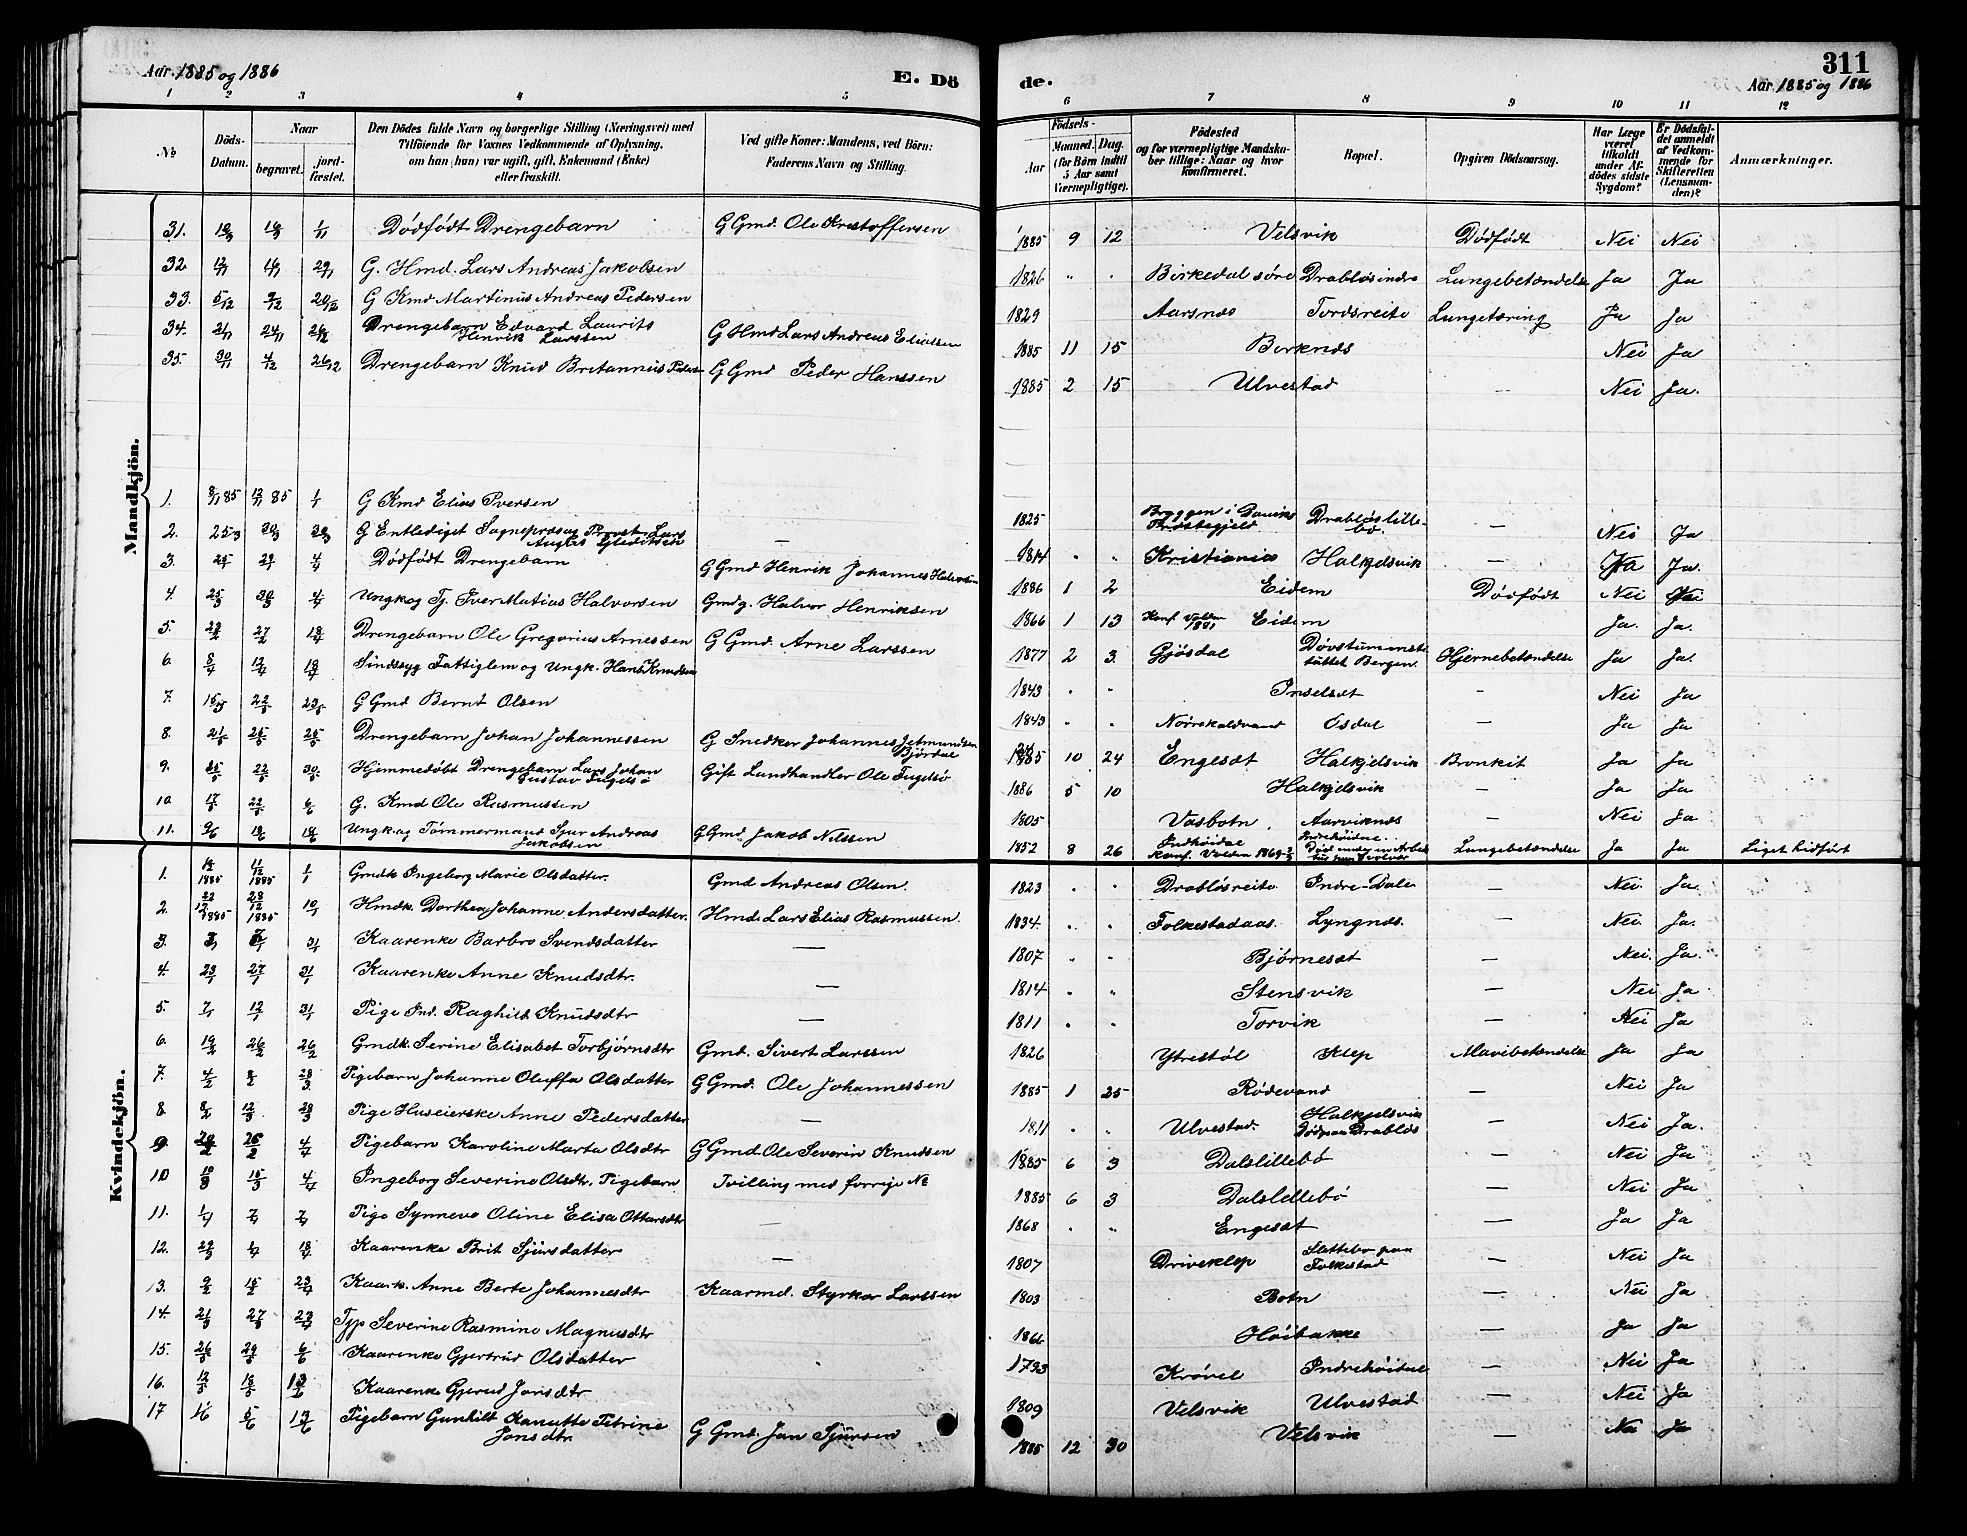 Aar 1885 og 1886
E. Dö
de.
311
Aar 1885 og 1886
1 2 3 4 5 6 7 8 9 10 11 12
No
Döds-Datum.
Naar
begravet.
jord-fæstet.
Den Dödes fulde Navn og borgerlige Stilling (Næringsvei) med
Tilföiende for Voxnes Vedkommende af Oplysning,
om han (hun) var ugift, gift, Enkemand (Enke)
eller fraskilt.
Ved gifte Koner: Mandens, ved Börn:
Faderens Navn og Stilling.
Födsels-
Aar
Maaned. Dag.
(for Börn indtil
5 Aar samt
Værnepligtige).
Födested
og for værnepligtige Mandska-
ber tillige: Naar og hvor
konfirmeret.
Bopæl.
Opgiven Dödsaarsag.
Har Læge
været
tilkaldt
under Af-
dödes sidste
Sygdom?
Er Dödsfal-
det anmeldt
af Vedkom-
mende for
Skifteretten
(Lensman-
den)?
Anmærkninger.
Mandkjön.
31. Dødfødt Drengebarn G Gmd. Ole Kristoffersen 1885 9 12 Velsvik Dødfødt Nei Nei
32 G. Hmd. Lars Andreas Jakobsen 1826 " " Birkedal søre Drabløs indre Lungebetændelse Ja Ja
33. 5/12 9/12 20/12 G Kmd Martinus Andreas Pedersen 1829 Aarsnes Tordsreite Lungetæring Ja Ja
34. 21/11 24/11 Drengebarn Edvard Laurits
Henrik Larssen G Hmd Lars Andreas Eliassen 1885 11 15 Birknes Nei Ja
35. 30/11 4/12 26/12 Drengebarn Knud Britannus Peders G Gmd Peder Hanssen 1885 2 15 Ulvestad — Nei Ja.
1. 8/11 85 12/11 85 1/1 G Kmd Elias Iversen 1825 Bryggen i Daviks
Præstegjeld Drabløslille-
bø. — Nei Ja
2. G Entlediget Sogneprest Provst Lars — 1814 " " Kristiania Halkjelsvik — Ja Ja.
3. Dødfødt Drengebarn G Gmd Henrik Johannes Halvorsen 1886 1 2 Eidem Dødfødt Nei Nei
4. 25/3 30/3 4/4 Ungk og Tj. Iver Matias Halvorsen Gmdg. Halvor Henriksen 1866 1 13 Konf. Volden
1881 Eidem Ja. Ja.
5. 27/2 18/4 Drengebarn Ole Gregorius Arnessen G Gmd. Arne Larssen 1877 2 3. Gjøsdal Døvstummeinsti-
tuttet Bergen Hjernebetændelse Ja Ja.
6. 8/4 12/4 18/4 Sindssyg Fattiglem og Ungk. Hans Knudsen 1843 " " Inselset — Nei Ja
7. G Gmd Bernt Olsen 1843 " " Nørrekaldvand Øsdal — Ja Ja
8. Drengebarn Johan Johannessen G Snedker Johannes Jetmundsen
Bjørdal 1885 10 24 Engeset Halkjelsvik Bronkit Ja Ja
9. Hjemmedøbt Drengebarn Lars Johan
Gustav Fugelsø Gift Landhandler Ole Fugelsø 1886 5 10 Halkjelsvik — Ja Ja
10. G. Kmd Ole Rasmussen 1805 Vasbotn Aarviknes — Nei Ja
11. Ungk. og Tømmermand Sjur Andreas
Jakobsen G Gmd. Jakob Nilssen 1852 8 26 Indhøidal
Konf. Volden Indrehøidal. Lungebetændelse Ja Ja Liget hidført
Kvindekjön.
1. 1885 11/12 1885 1/1 Gmdk Ingeborg Marie Olsdatter. Gmd Andreas Olsen. 1823 " " Drabløsreite Indre-Dale — Nei Ja.
2. 22/12 1885 28/12 1885 10/1 Hmdk. Dorthea Johanne Andersdatter. Hmd. Lars Elias Rasmussen 1834. " " Folkestadaas Lyngnes. — Nei Ja.
3. 31/1 Kaarenke Barbro Svendsdatter — 1807 " " Bjørneset — Nei Ja.
4. 23/1 27/1 31/1 Kaarenke Anne Knudsdtr. — 1814 " " Stensvik — Nei Ja
5. 7/1 12/1 31/1 Pige Ind. Raghild Knudsdtr — 1811 " " Torvik — Nei Ja
6. 19/2 26/2 26/2 Gmdk. Serine Elisabet Torbjørnsdtr Gmd. Sivert Larssen 1826 Ytrestøl Klep Mavebetændelse Ja Ja
7. 4/2 8/2 28/3 Pigebarn Johanne Oluffa Olsdatter G Gmd. Ole Johannessen 1885 1 25 Rødevand — Nei Ja
8. Pige Huseierske Anne Pedersdatter — 1811 " " Ulvestad. Halkjelsvik
Død paa Drabløs — Nei Ja.
9. 4/4 Pigebarn Karoline Marta Olsdtr G Gmd. Ole Severin Knudsen 1885 6 3 Dalslillebø — Nei Ja
10 15/3 4/4 Ingeborg Severine Olsdtr. Pigebarn Tvilling med forrige No 1885 6 3 Dalslillebø — Nei Ja
11. 1/4 7/4 7/4 Pige Synneve Oline Elisa Ottarsdtr — 1868 " " Engeset — Ja Ja
12. 29/3 1/4 18/4 Kaarenke Brit Sjursdatter — 1807 Driveklep Slottebø paa
Folkestad — Nei Ja
13. 9/2 15/2 23/4 Kaark. Anne Berte Johannesdtr Kaarmd. Styrkor Larssen 1803 Botn — Nei Ja
14. 21/3 27/3 23/4 Tjp Severine Rasmine Magnusdtr Høibakke — Ja Ja
15. 26/5 29/5 6/6 Kaarenke Gjertrud Olsdatter 1793 Krøvel Indrehøidal — Nei Ja
16. Kaarenke Gjerud Jonsdtr 1809 Velsvik Ulvestad — Nei Ja
17 1/6 5/6 13/6 Pigebarn Gunhilt Kanutte Petrine
Jonsdtr. G Gmd. Jan Sjursen 1885 12 30 Velsvik — Nei Ja